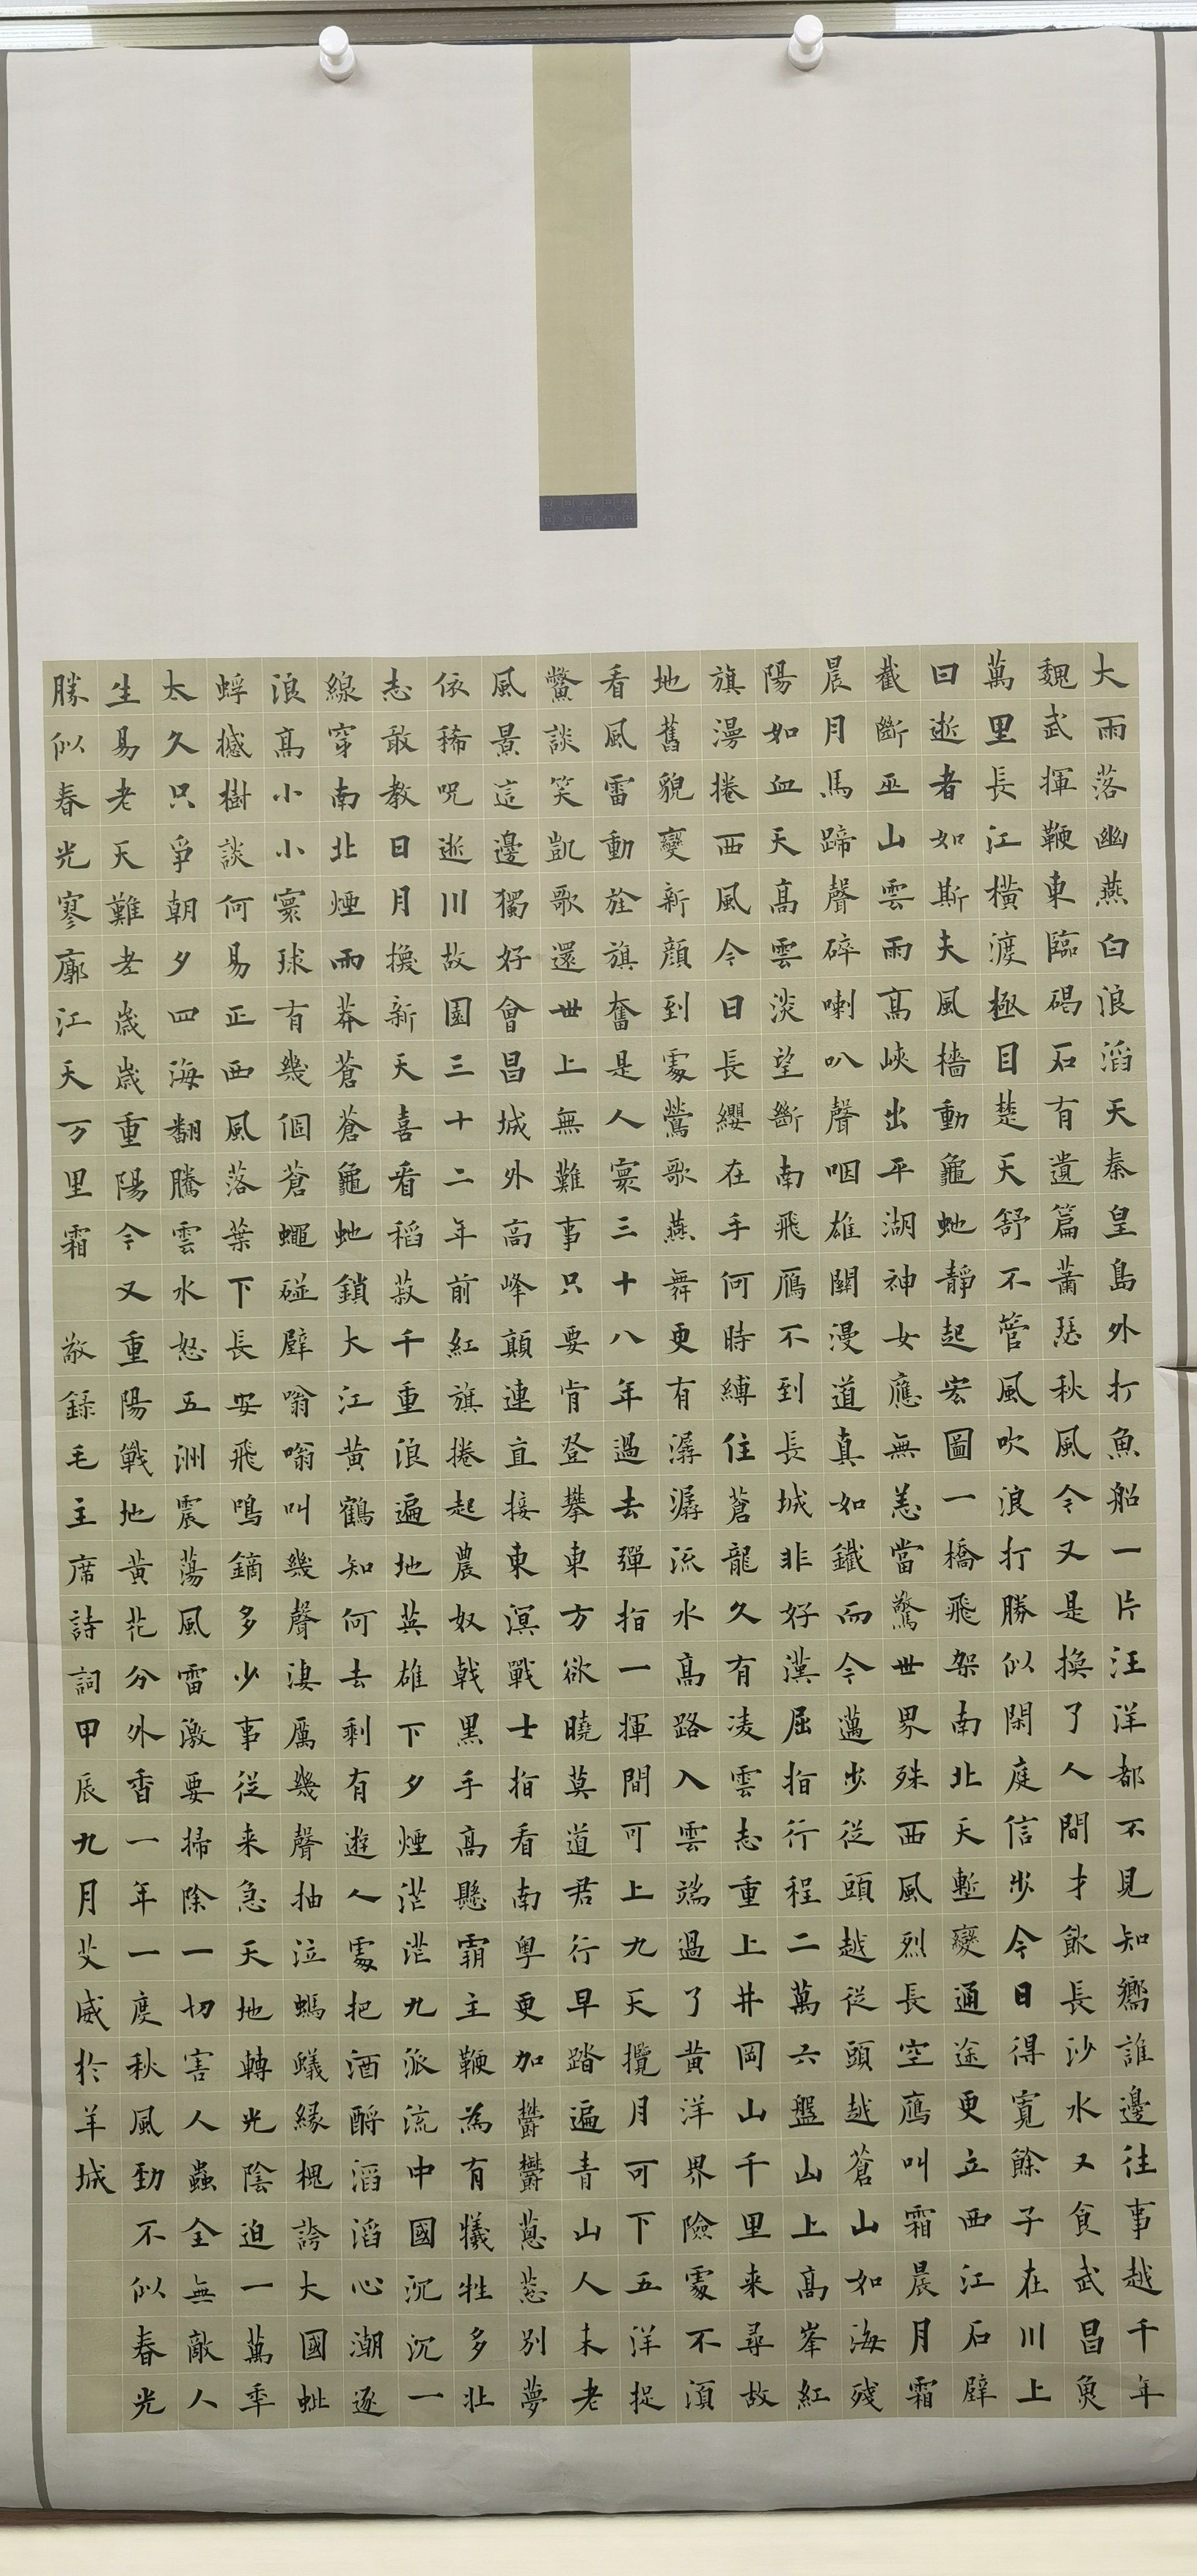 大雨落幽燕白浪滔天秦皇島外打魚船一片汪洋都不見知嚮誰邊往事越千年
魏武揮鞭東臨碣石有遺篇蕭瑟秋風今又是換了人間才飲長沙水又食武昌魚
萬里長江橫渡極目楚天舒不管風吹浪打勝似閑庭信步今日得寬餘子在川上
曰逝者如斯夫風檣動龜虵靜起宏圖一橋飛架南北天塹變通途更立西江石壁
截斷巫山雲雨高峽出平湖神女應無恙當驚世界殊西風烈長空鴈叫霜晨月霜
晨月馬蹄聲碎喇叭聲咽雄關漫道真如鐵而今邁步從頭越從頭越蒼山如海殘
陽如血天高雲淡望斷南飛鴈不到長城非好漢屈指行程二萬六盤山上高峯紅
旗漫捲西風今日長纓在手何時縛住蒼龍久有凌雲志重上井岡山千里来尋故
地舊貌變新顔到處鶯歌燕舞更有潺潺流水高路入雲端過了黃洋界險處不湏
看風雷動旌旗奮是人寰三十八年過去彈指一揮間可上九天攬月可下五洋捉
鱉談笑凱歌還世上無難事只要肯登攀東方欲曉莫道君行早踏遍青山人未老
風景這邊獨好會昌城外高峰顛連直接東溟戰士指看南粵更加鬱鬱蔥蔥別夢
依稀咒逝川故園三十二年前紅旗捲起農奴戟黑手高懸霸主鞭為有犧牲多壯
志敢教日月換新天喜看稻菽千重浪遍地英雄下夕煙茫茫九派流中國沉沉一
線穿南北煙雨莽蒼蒼龜虵鎖大江黃鶴知何去剩有遊人處把酒酹滔滔心潮逐
浪高小小寰球有幾個蒼蠅碰壁嗡嗡叫幾聲淒厲幾聲抽泣螞蟻緣槐誇大國蚍
蜉撼樹談何易正西風落葉下長安飛鳴鏑多少事從来急天地轉光陰迫一萬年
太久只爭朝夕四海翻騰雲水怒五洲震蕩風雷激要掃除一切害人蟲全無敵人
生易老天難老歲歲重陽今又重陽戰地黃花分外香一年一度秋風勁不似春光
勝似春光寥廓江天万里霜 敬錄毛主席詩詞甲辰九月艾威於羊城